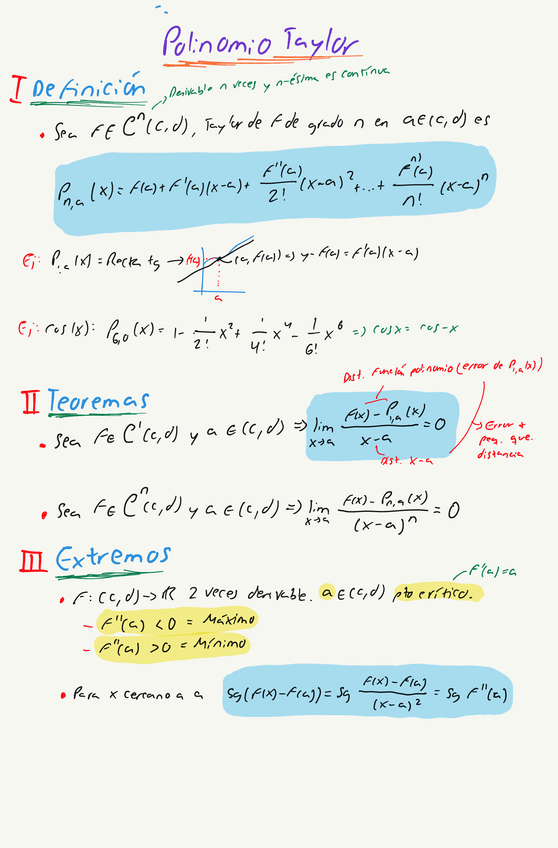 Polinomio Taylor
I Definición
Derivable n veces y n-ésima es continua
• Sea F∈ Cⁿ(c,d), Taylor de F de grado n en a∈(c,d) es
Pn,a (x) = F(a) + F'(a)(x-a) + F''(a)/2! (x-a)² + ... + Fⁿ⁾(a)/n! (x-a)ⁿ
Ej: P1,a(x) = Recta tg → F(a) (a, F(a)) => y-F(a) = F'(a)(x-a)
a
Ej: cos(x): P6,0(x) = 1- 1/2! x² + 1/4! x⁴ - 1/6! x⁶ => cosx = cos-x
Dist. Función polinomio (error de P1,a(x))
II Teoremas
• Sea F∈ C'(c,d) y a ∈(c,d) => lim x→a F(x) - P1,a(x) / x-a = 0
Dist. x-a
→ Error + peq. que. distancia
• Sea F∈ Cⁿ(c,d) y a ∈(c,d) => lim x→a F(x) - Pn,a(x) / (x-a)ⁿ = 0
III Extremos
F'(a)=a
• F: (c,d) → ℝ 2 veces derivable. a∈(c,d) pto crítico.
- F''(a) <0 = Máximo
- F''(a) >0 = Mínimo
• Para x cercano a a Sg(F(x)-F(a)) = Sg F(x)-F(a) / (x-a)² = Sg F''(a)